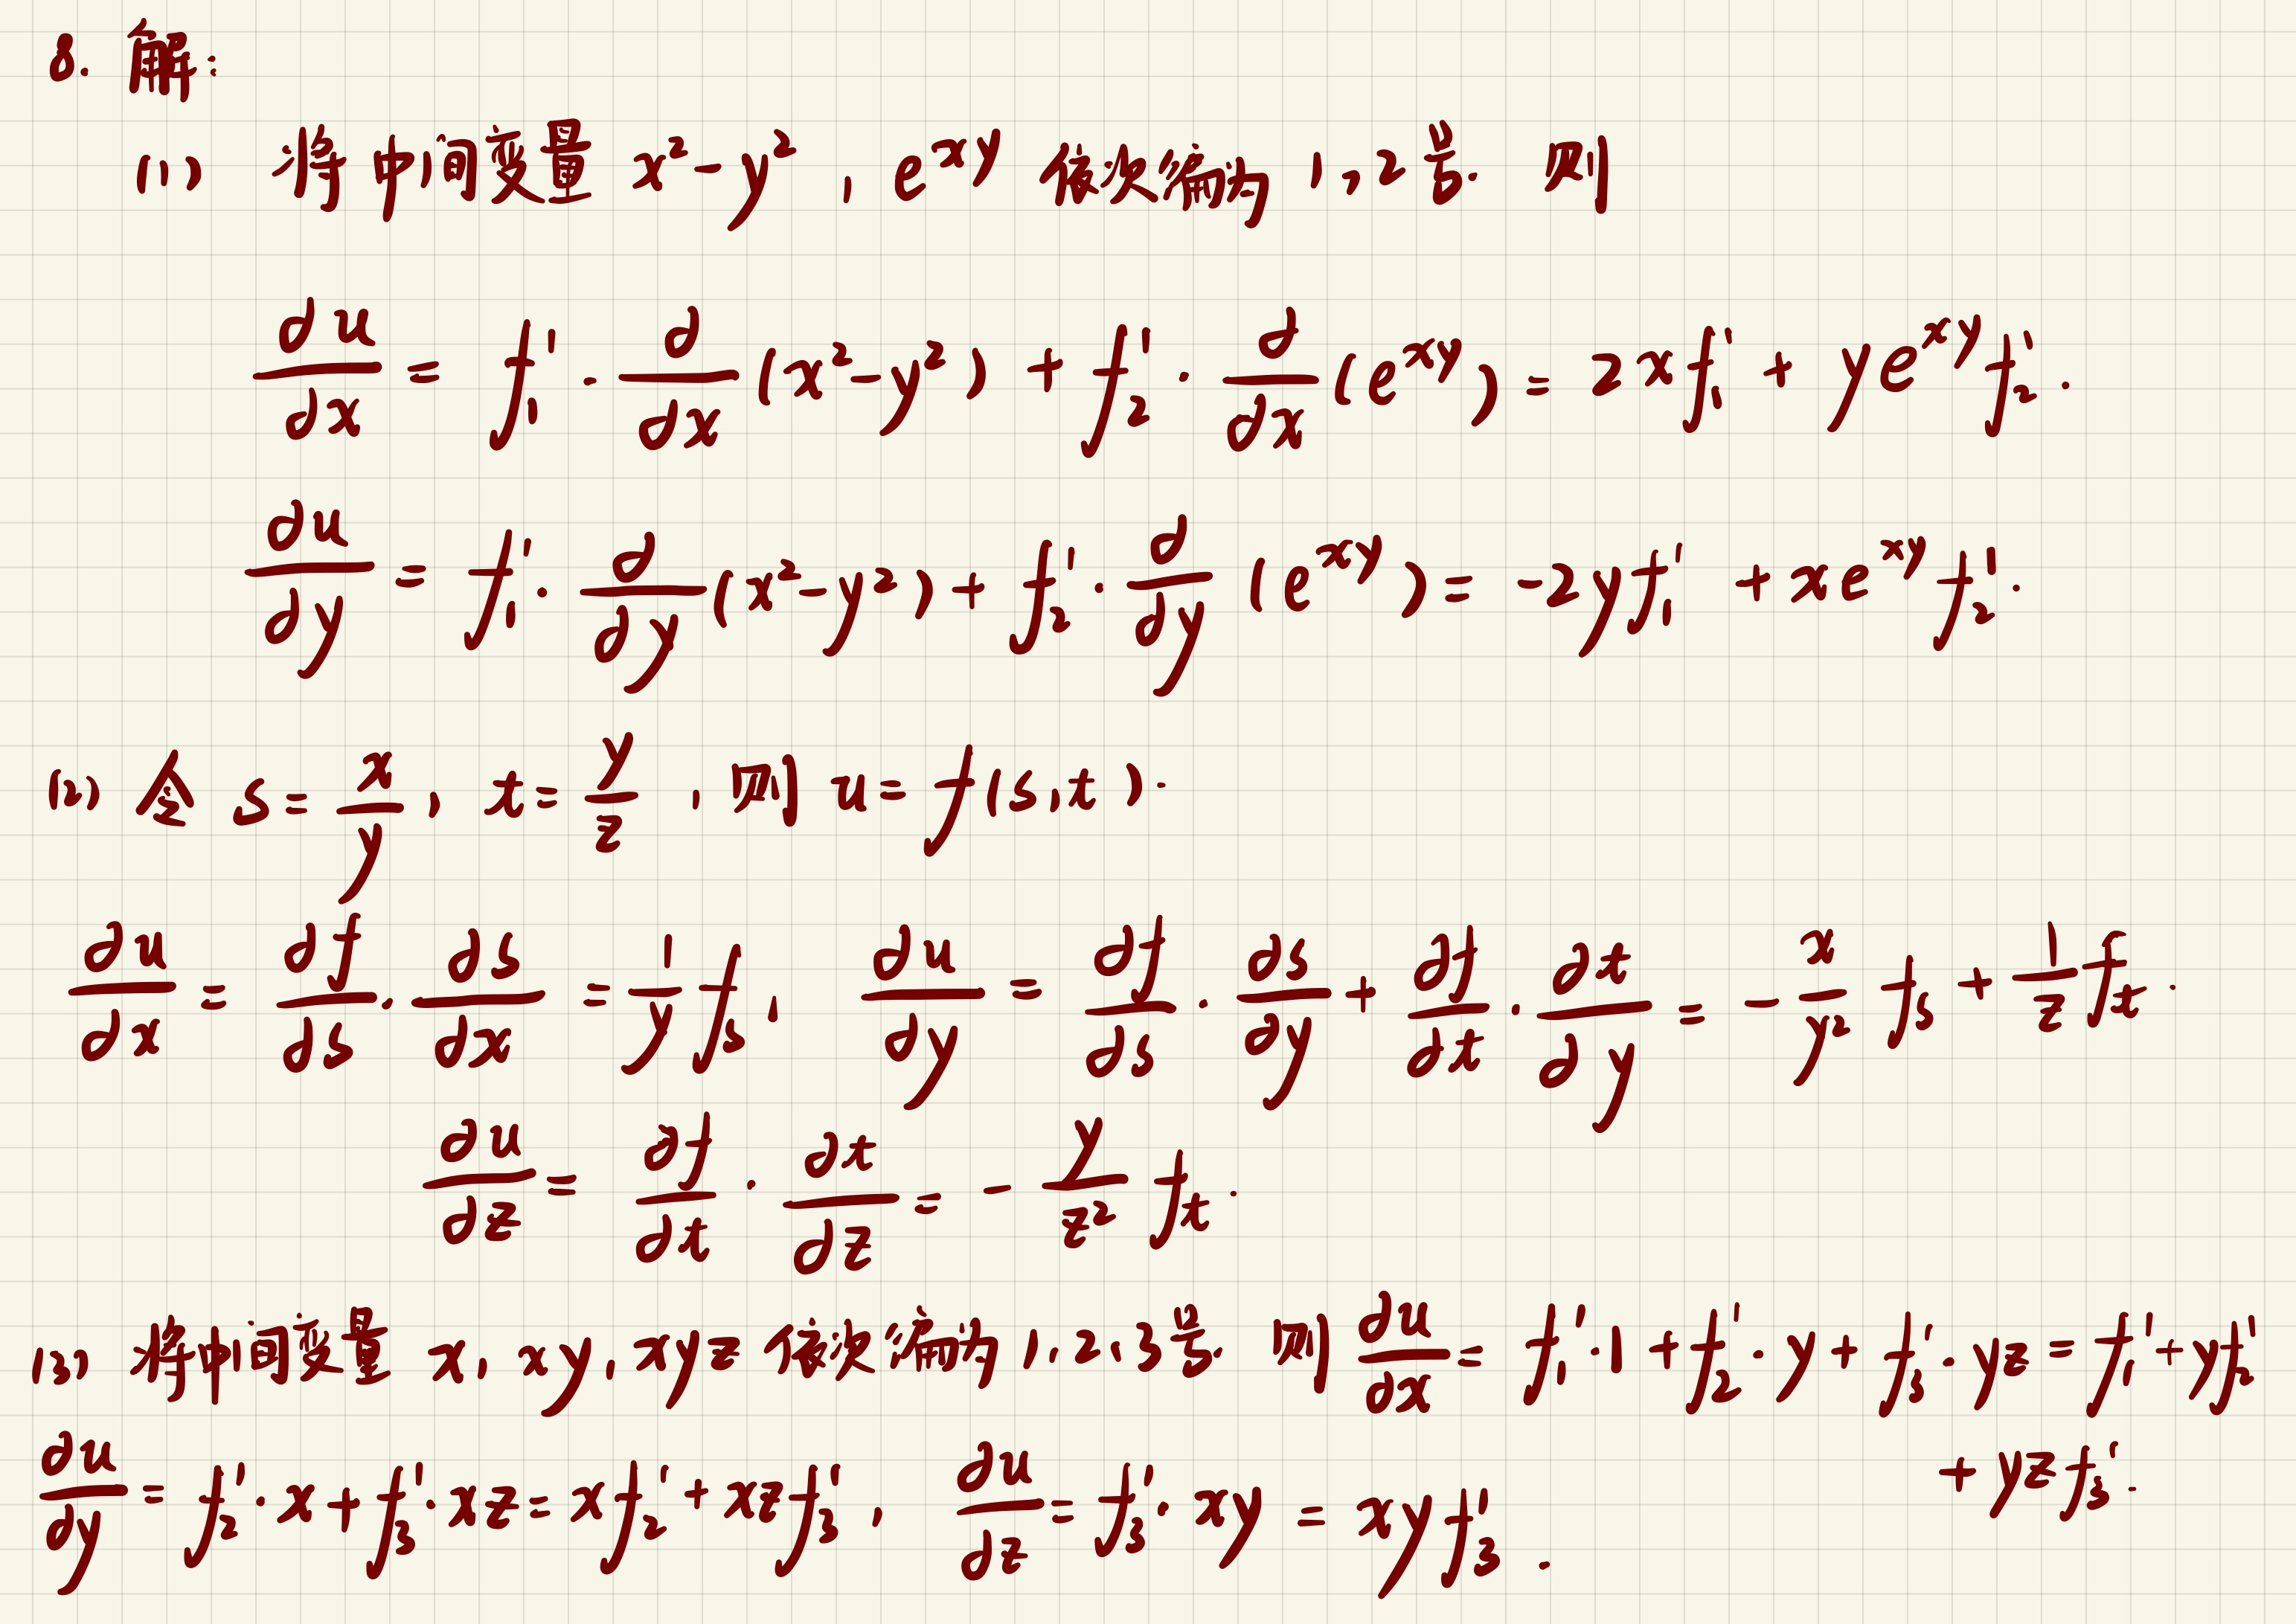 8. 解:
(1) 将中间变量 x²-y², e^{xy} 依次编为 1, 2号. 则
∂u/∂x = f₁' · ∂/∂x (x²-y²) + f₂' · ∂/∂x (e^{xy}) = 2xf₁' + ye^{xy}f₂'.
∂u/∂y = f₁' · ∂/∂y (x²-y²) + f₂' · ∂/∂y (e^{xy}) = -2yf₁' + xe^{xy}f₂'.
(2) 令 s = x/y, t = y/z, 则 u = f(s,t).
∂u/∂x = ∂f/∂s · ∂s/∂x = 1/y f_s, ∂u/∂y = ∂f/∂s · ∂s/∂y + ∂f/∂t · ∂t/∂y = - x/y² f_s + 1/z f_t.
∂u/∂z = ∂f/∂t · ∂t/∂z = - y/z² f_t.
(3) 将中间变量 x, xy, xyz 依次编为 1, 2, 3号. 则 ∂u/∂x = f₁' · 1 + f₂' · y + f₃' · yz = f₁' + yf₂'
+ yzf₃'.
∂u/∂y = f₂' · x + f₃' · xz = xf₂' + xzf₃', ∂u/∂z = f₃' · xy = xyf₃'.